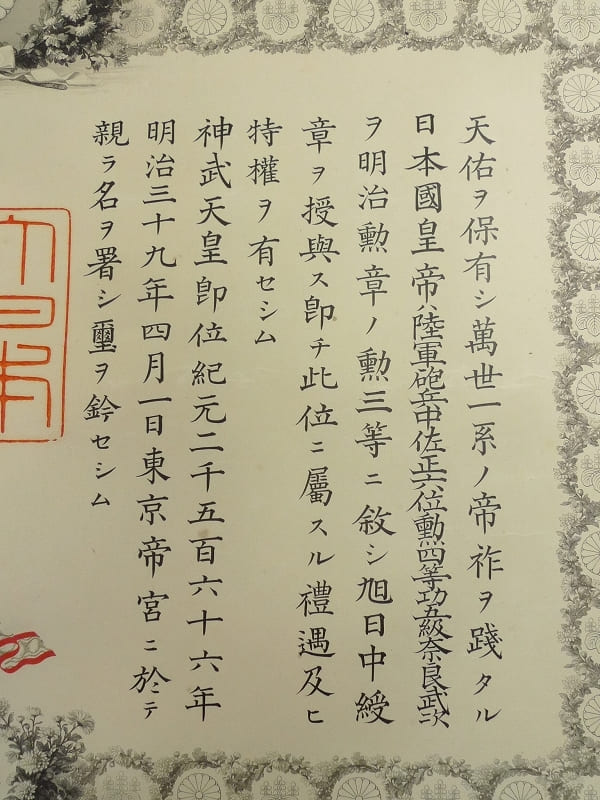 天佑ヲ保有シ萬世一系ノ帝祚ヲ踐タル
日本國皇帝ハ陸軍砲兵中佐正六位勳四等功五級奈良武次
ヲ明治勳章ノ勳三等ニ敘シ旭日中綬
章ヲ授與ス卽チ此位ニ屬スル禮遇及ヒ
特權ヲ有セシム
神武天皇卽位紀元二千五百六十六年
明治三十九年四月一日東京帝宮ニ於テ
親ラ名ヲ署シ璽ヲ鈐セシム